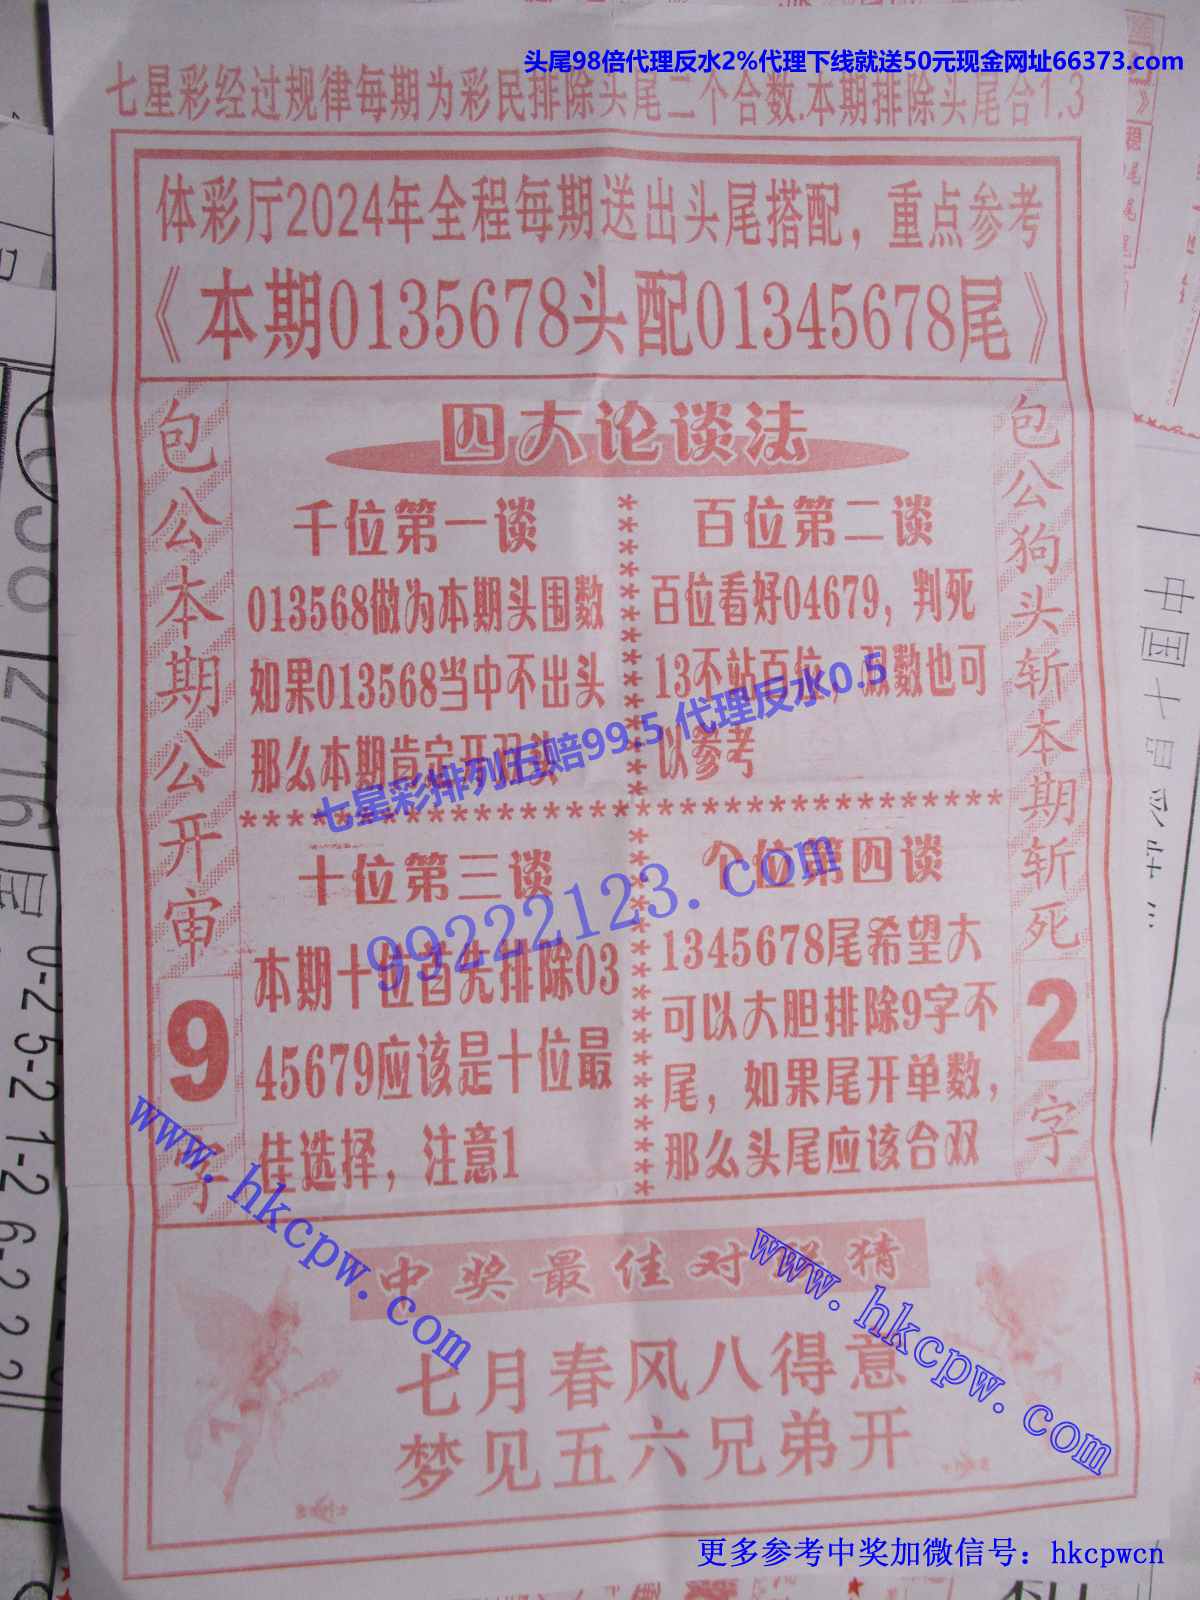 头尾98倍代理反水2%代理下线就送50元现金网址66373.com
七星彩经过规律每期为彩民排除头尾二个合数.本期排除头尾合1.3
体彩厅2024年全程每期送出头尾搭配，重点参考
《本期0135678头配01345678尾》
包公本期公开审
9
字
四大论谈法
千位第一谈
013568做为本期头围数
如果013568当中不出头
那么本期肯定开双头
百位第二谈
百位看好04679，判死
13不站百位，数也可
以参考
七星彩排列五赔99.5 代理反水0.5
十位第三谈
本期十位首先排除03
45679应该是十位最
佳选择，注意1
个位第四谈
1345678尾希望大
可以大胆排除9字不
尾，如果尾开单数，
那么头尾应该合双
99222123.com
包公狗头斩本期斩死
2
字
www.hkcpw.com
www.hkcpw.com
中奖最佳对 猜
七月春风八得意
梦见五六兄弟开
更多参考中奖加微信号：hkcpwcn
中国七星彩
27161尾
0-25-21-26-222